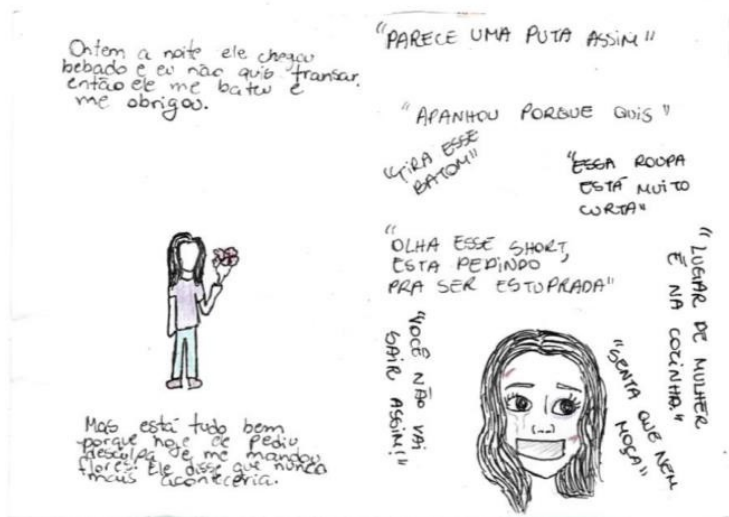 Ontem a noite ele chegou
bebado e eu não quis transar,
então ele me bateu e
me obrigou.
Mas está tudo bem
porque hoje ele pediu
desculpa e me mandou
flores. Ele disse que nunca
mais aconteceria.
"PARECE UMA PUTA ASSIM"
"APANHOU PORQUE QUIS"
"TIRA ESSE
BATOM"
"ESSA ROUPA
ESTÁ MUITO
CURTA"
"OLHA ESSE SHORT,
ESTA PEDINDO
PRA SER ESTUPRADA"
"LUGAR DE MULHER
É NA COZINHA."
"VOCÊ NÃO VAI
SAIR ASSIM!"
"SENTA QUE NEM
MOÇA"